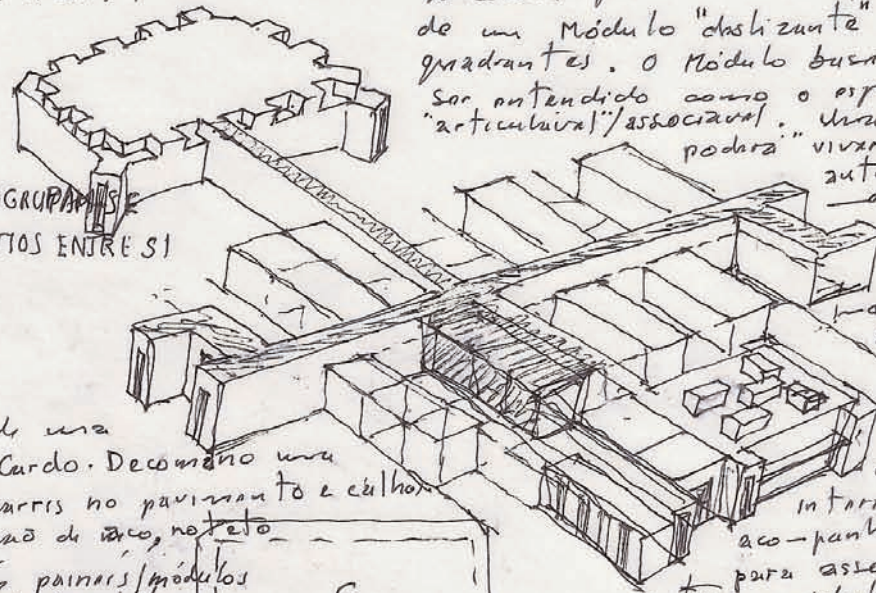 de um Módulo "deslizante"
quadrantes. O Módulo
ser entendido como o esp
"articulável"/associável. Uma
poderá" viver
aut
GRUPAM-SE
TIOS ENTRE SI
de uma
Cardo. Decomano uma
arris no pavimento e calhas
no teto
painéis/módulos
intern
aco-panh
para asse